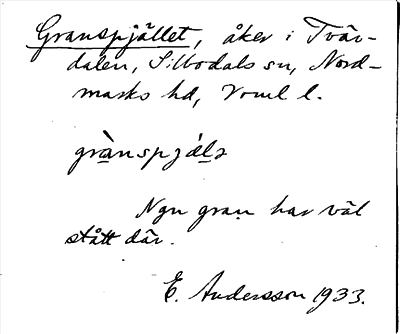 Granspjället, åker i Tvär-
dalen, Silbodals sn, Nord-
marks hd, Vrml l.
grànspjälə
Ngn gran har väl
stått där.
E. Andersson 1933.